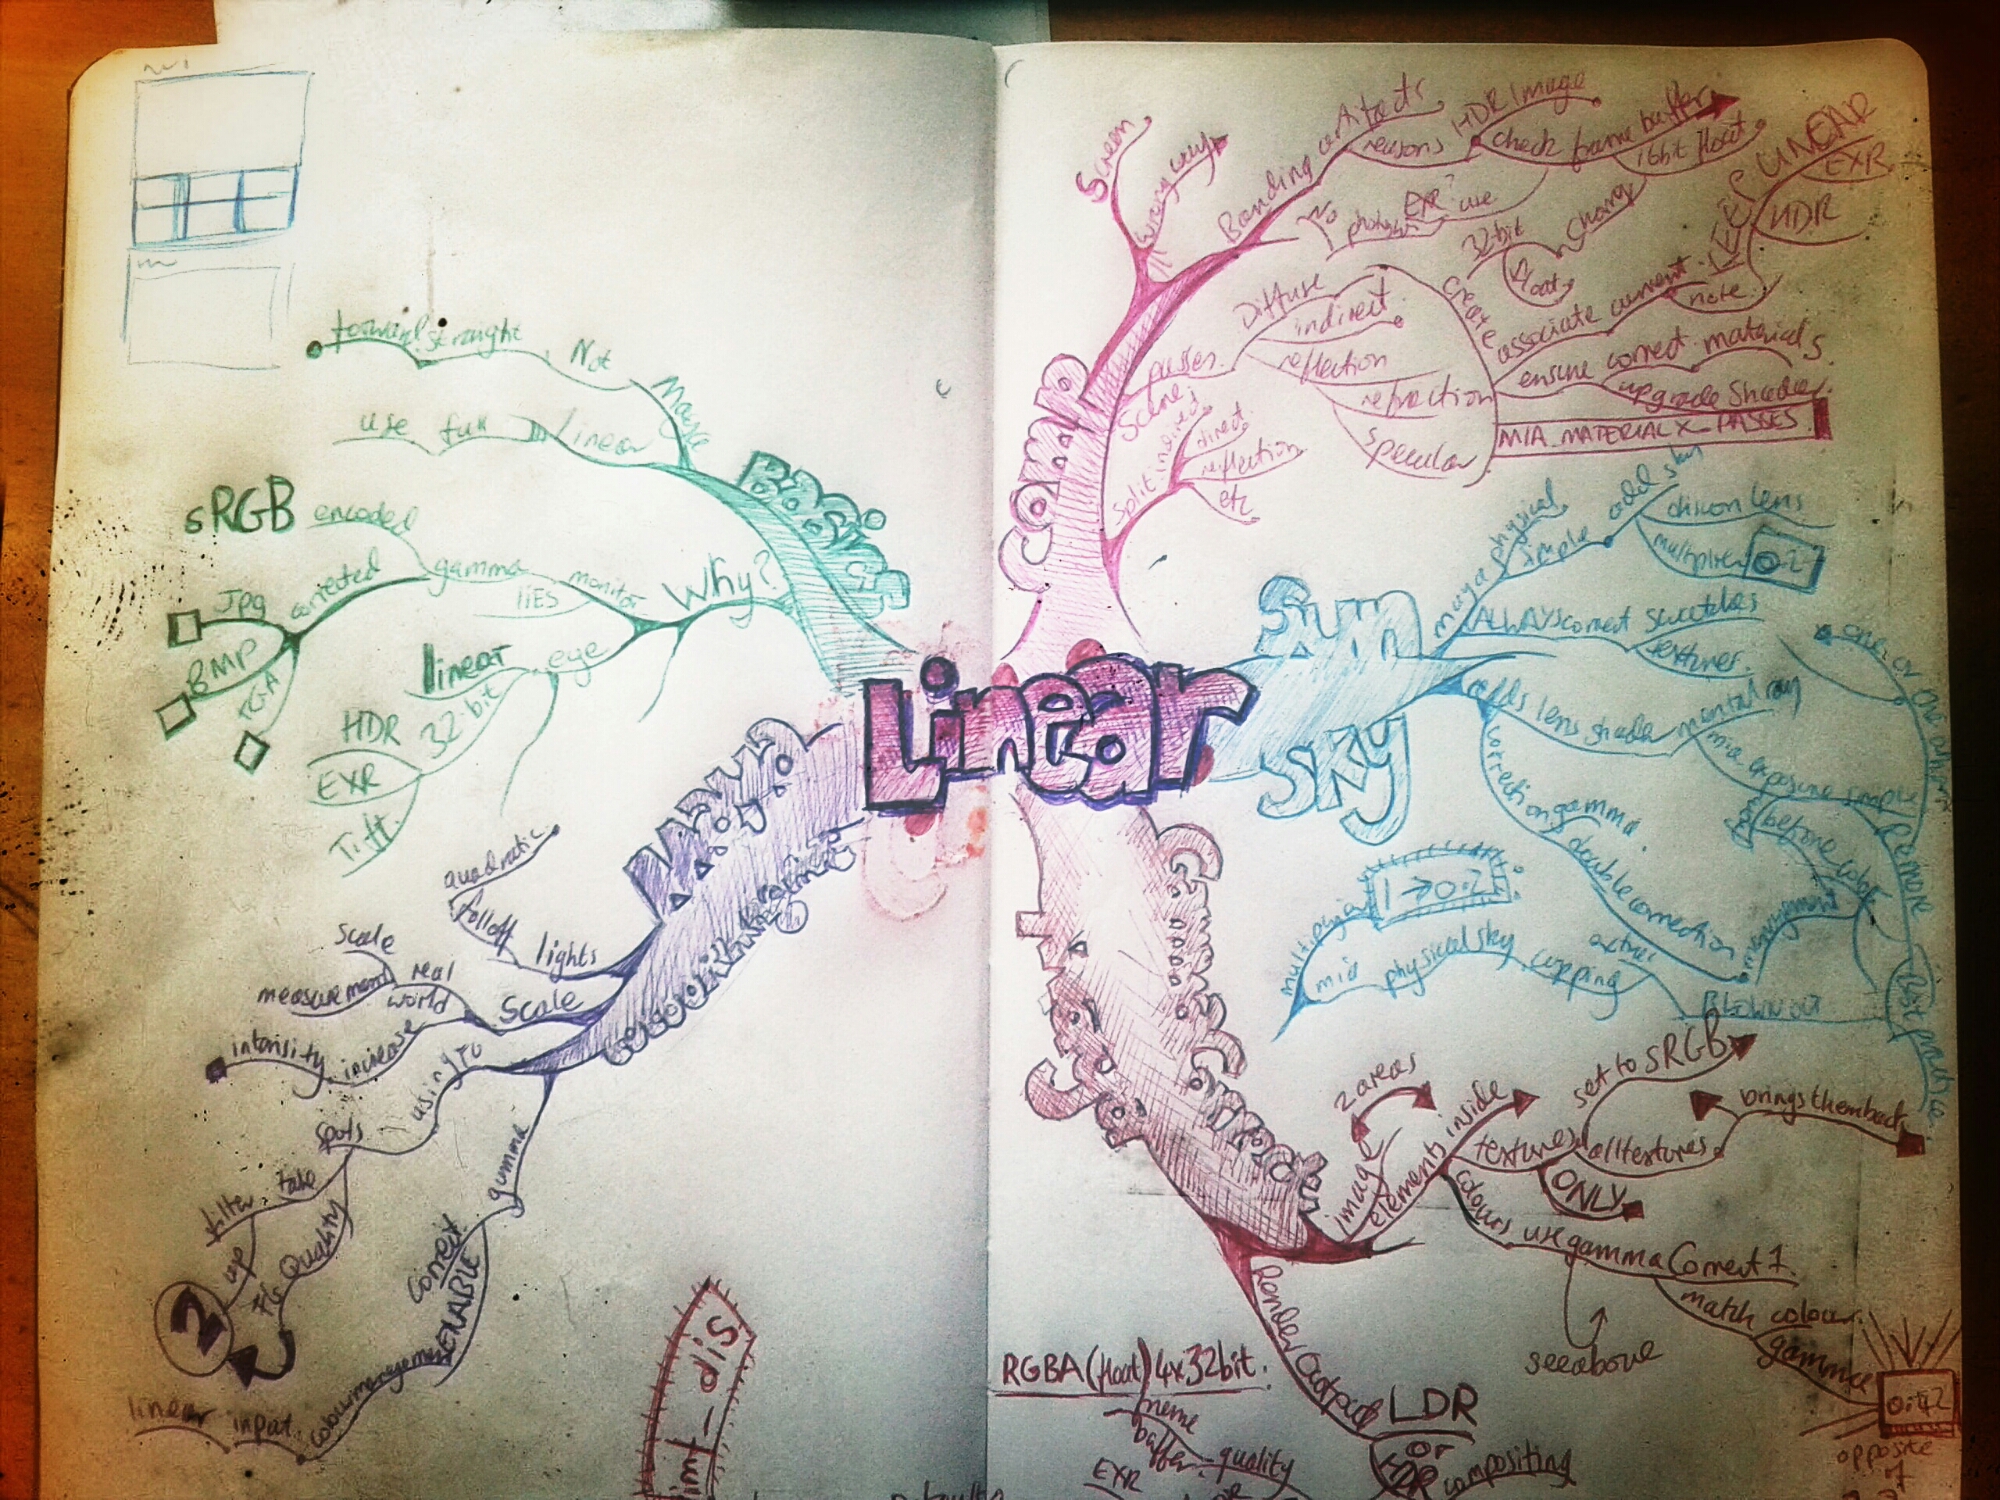 Linear
Basics
Maya
Not
straight
forward
linear
use full
Why?
monitor
lies
gamma
encoded
sRGB
corrected
Jpg
BMP
TGA
eye
linear
32-bit
HDR
EXR
Tiff
Maya
lights
falloff
quadratic
Scale
real
world
measurement
scale
increase
intensity
using
spots
take
filter
up
2
FG Quality
gamma
correct
ENABLE
colour management
input
linear
Comp
Screen
wrong way
Banding artifacts
reasons
HDR Image
check frame buffer
16bit float
Change
32-bit
float
No
EXR
use
passes
Scene
Diffuse
indirect
reflection
refraction
specular
Split indirect
direct
reflection
etc
create
associate current
note
KEEP LINEAR
EXR
HDR
ensure correct materials
upgrade Shader
MIA_MATERIAL_X_PASSES
Sun
Sky
physical
simple
add sky
lens
multiplier
0.2
ALWAYS correct swatches
textures
adds lens shader
mental ray
mia exposure simple
before color
management
remove
best practice
correction gamma
double correction
multiplier
1→0.2
mia physical sky
Blown out
Gamma
Correction
image
2 areas
elements inside
textures
set to sRGB
all textures
ONLY
brings them back
colours use gamma Correct 1
see above
match colour
gamma
opposite
of
Render Output
LDR
or
HDR
compositing
RGBA (float) 4x32bit.
buffer
quality
EXR